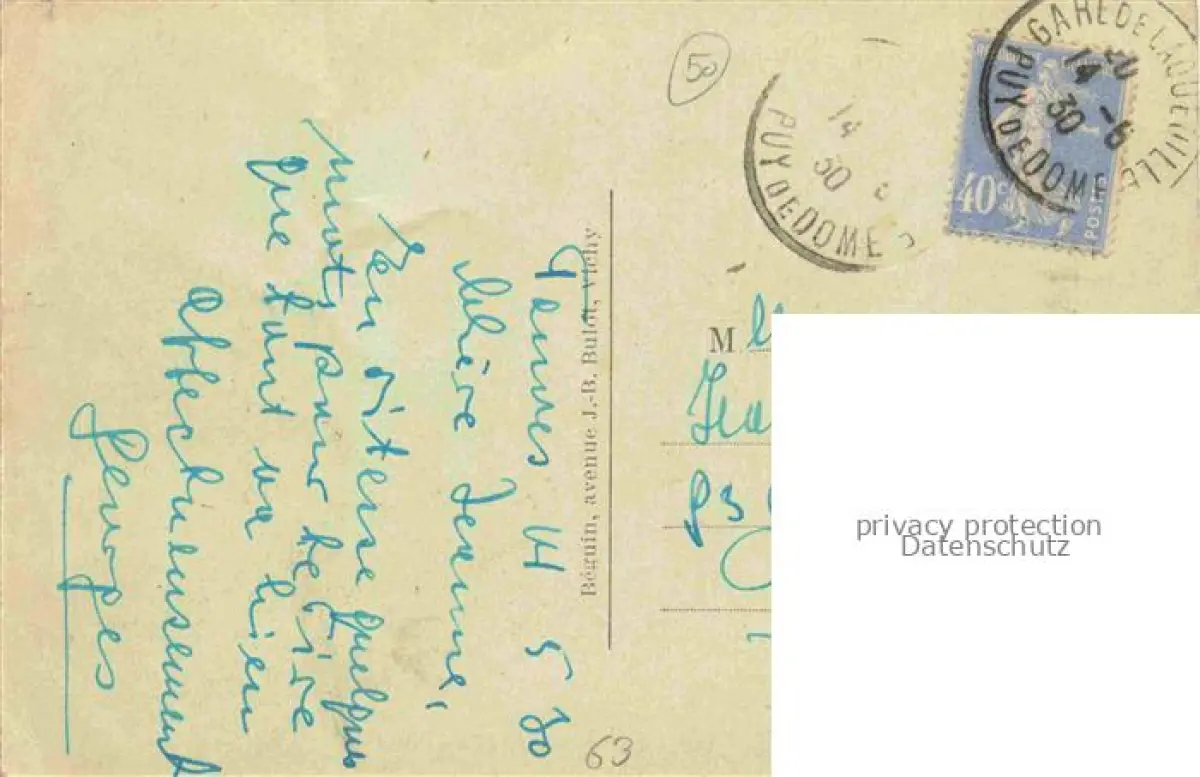 50
GARE DE LAQUEUILLE
20
14 -6
30
PUY DE DOME
14
30
PUY DE DOME
40c
POSTES
14 5 30
Chère Jeanne,
En vitesse quelques
mots pour te dire
que tout va bien
Affectueusement
Georges
Béguin, avenue J.-B. Bulot, Vichy
M
63
privacy protection
Datenschutz